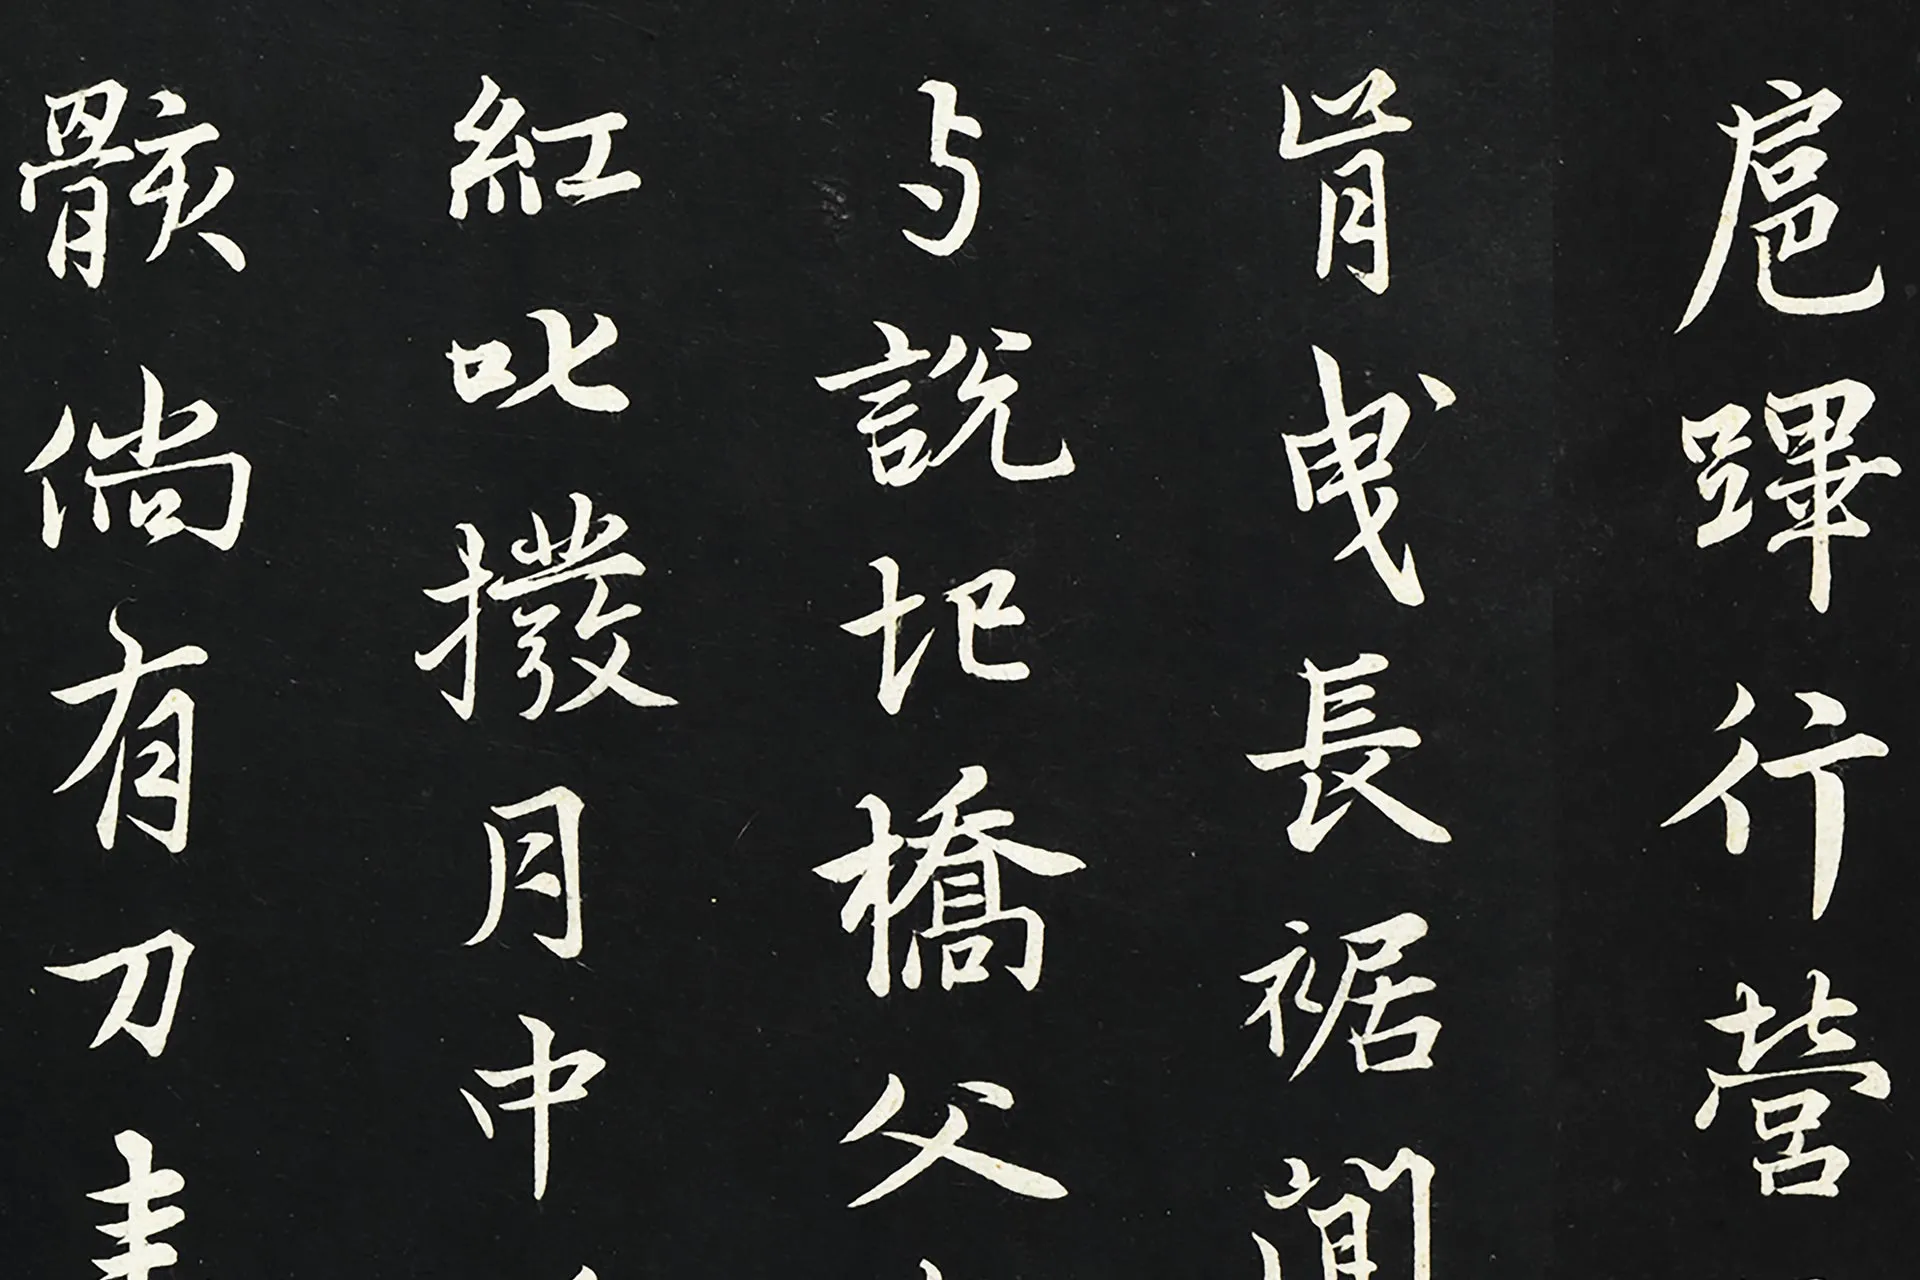 扈蹕行營
肯曳長裾
与說圯橋父
紅叱撥月中
骸倘有刀圭